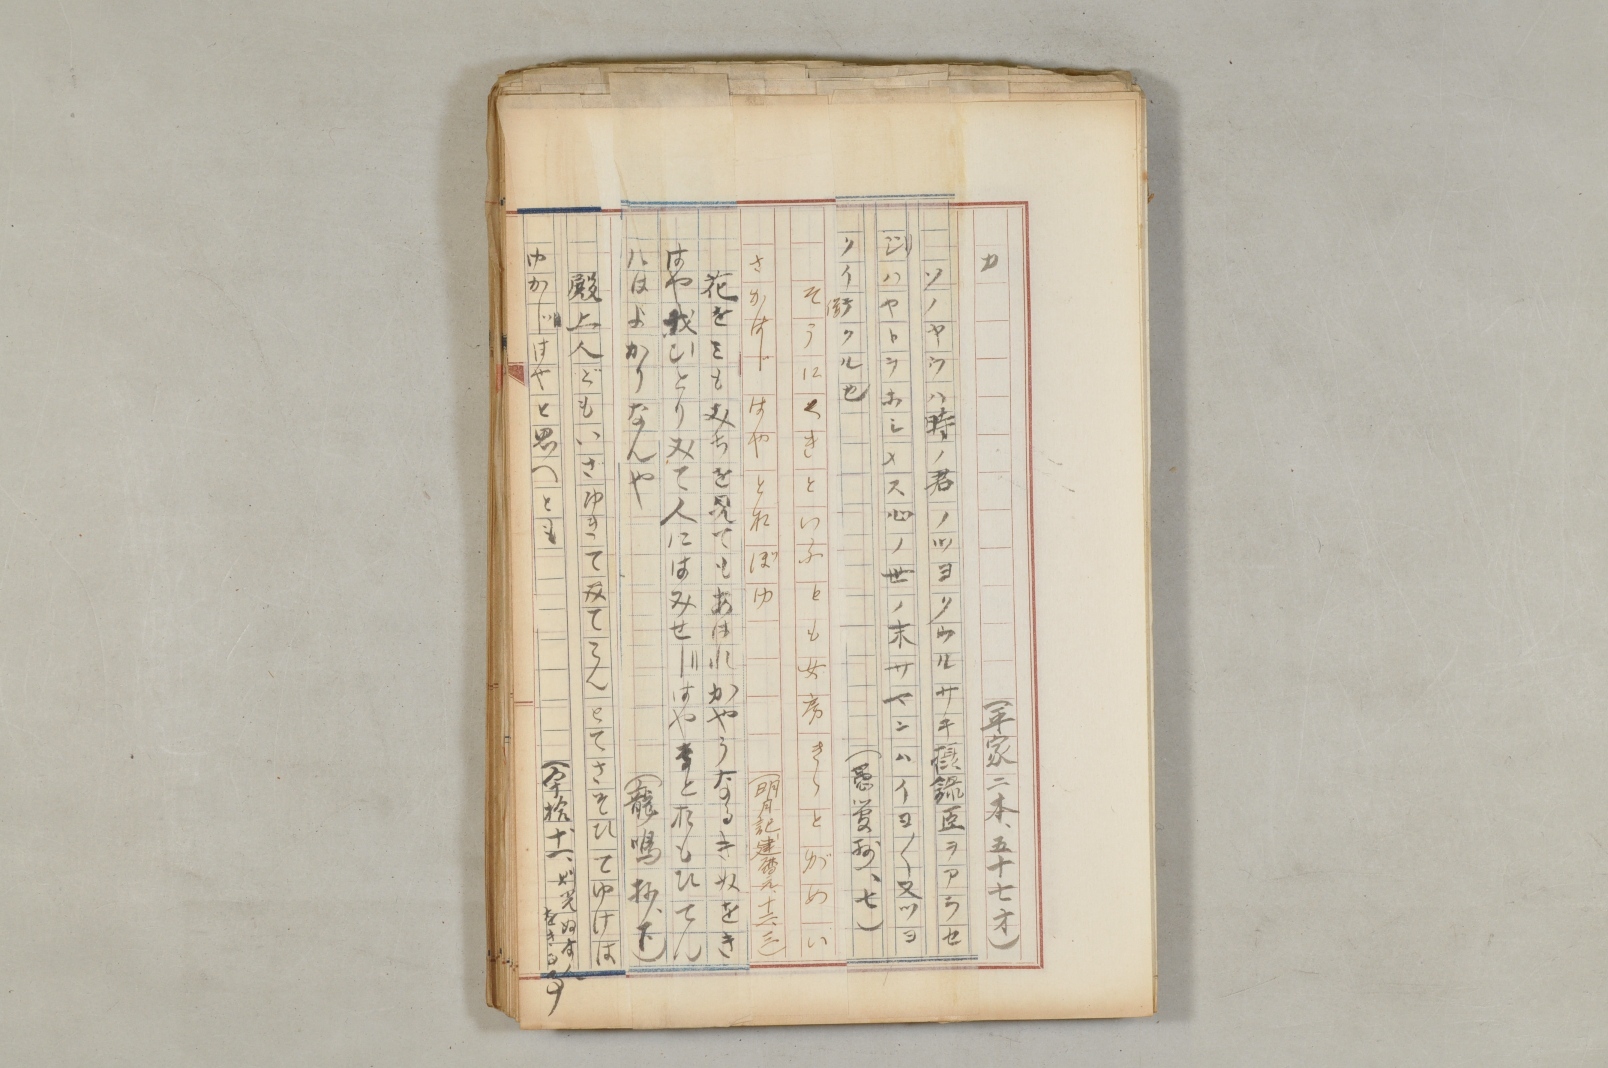 カ
(平家二本、五十七才)
ソノヤウハ時ノ君ノツヨクウルサキ摂籙臣ヲアラセ
ジハヤトヲホシメス心ノ世ノ末サマニハイヨ〱又ツヨ
クイデクル也
(愚管抄、七)
そうにくきといふとも女房きらとがめい
さかはじはやとおぼゆ
(明月記、建暦元、十一、六)
花をもみちを見てもあはれかやうなるきぬをき
はや我ひとりみて人にはみせじはやなとおもひてん
ハはよかりなんや
(龍鳴抄、下)
殿上人どもいざゆきてみてこんとてさそひてゆけは
ゆかじはやと思へとも